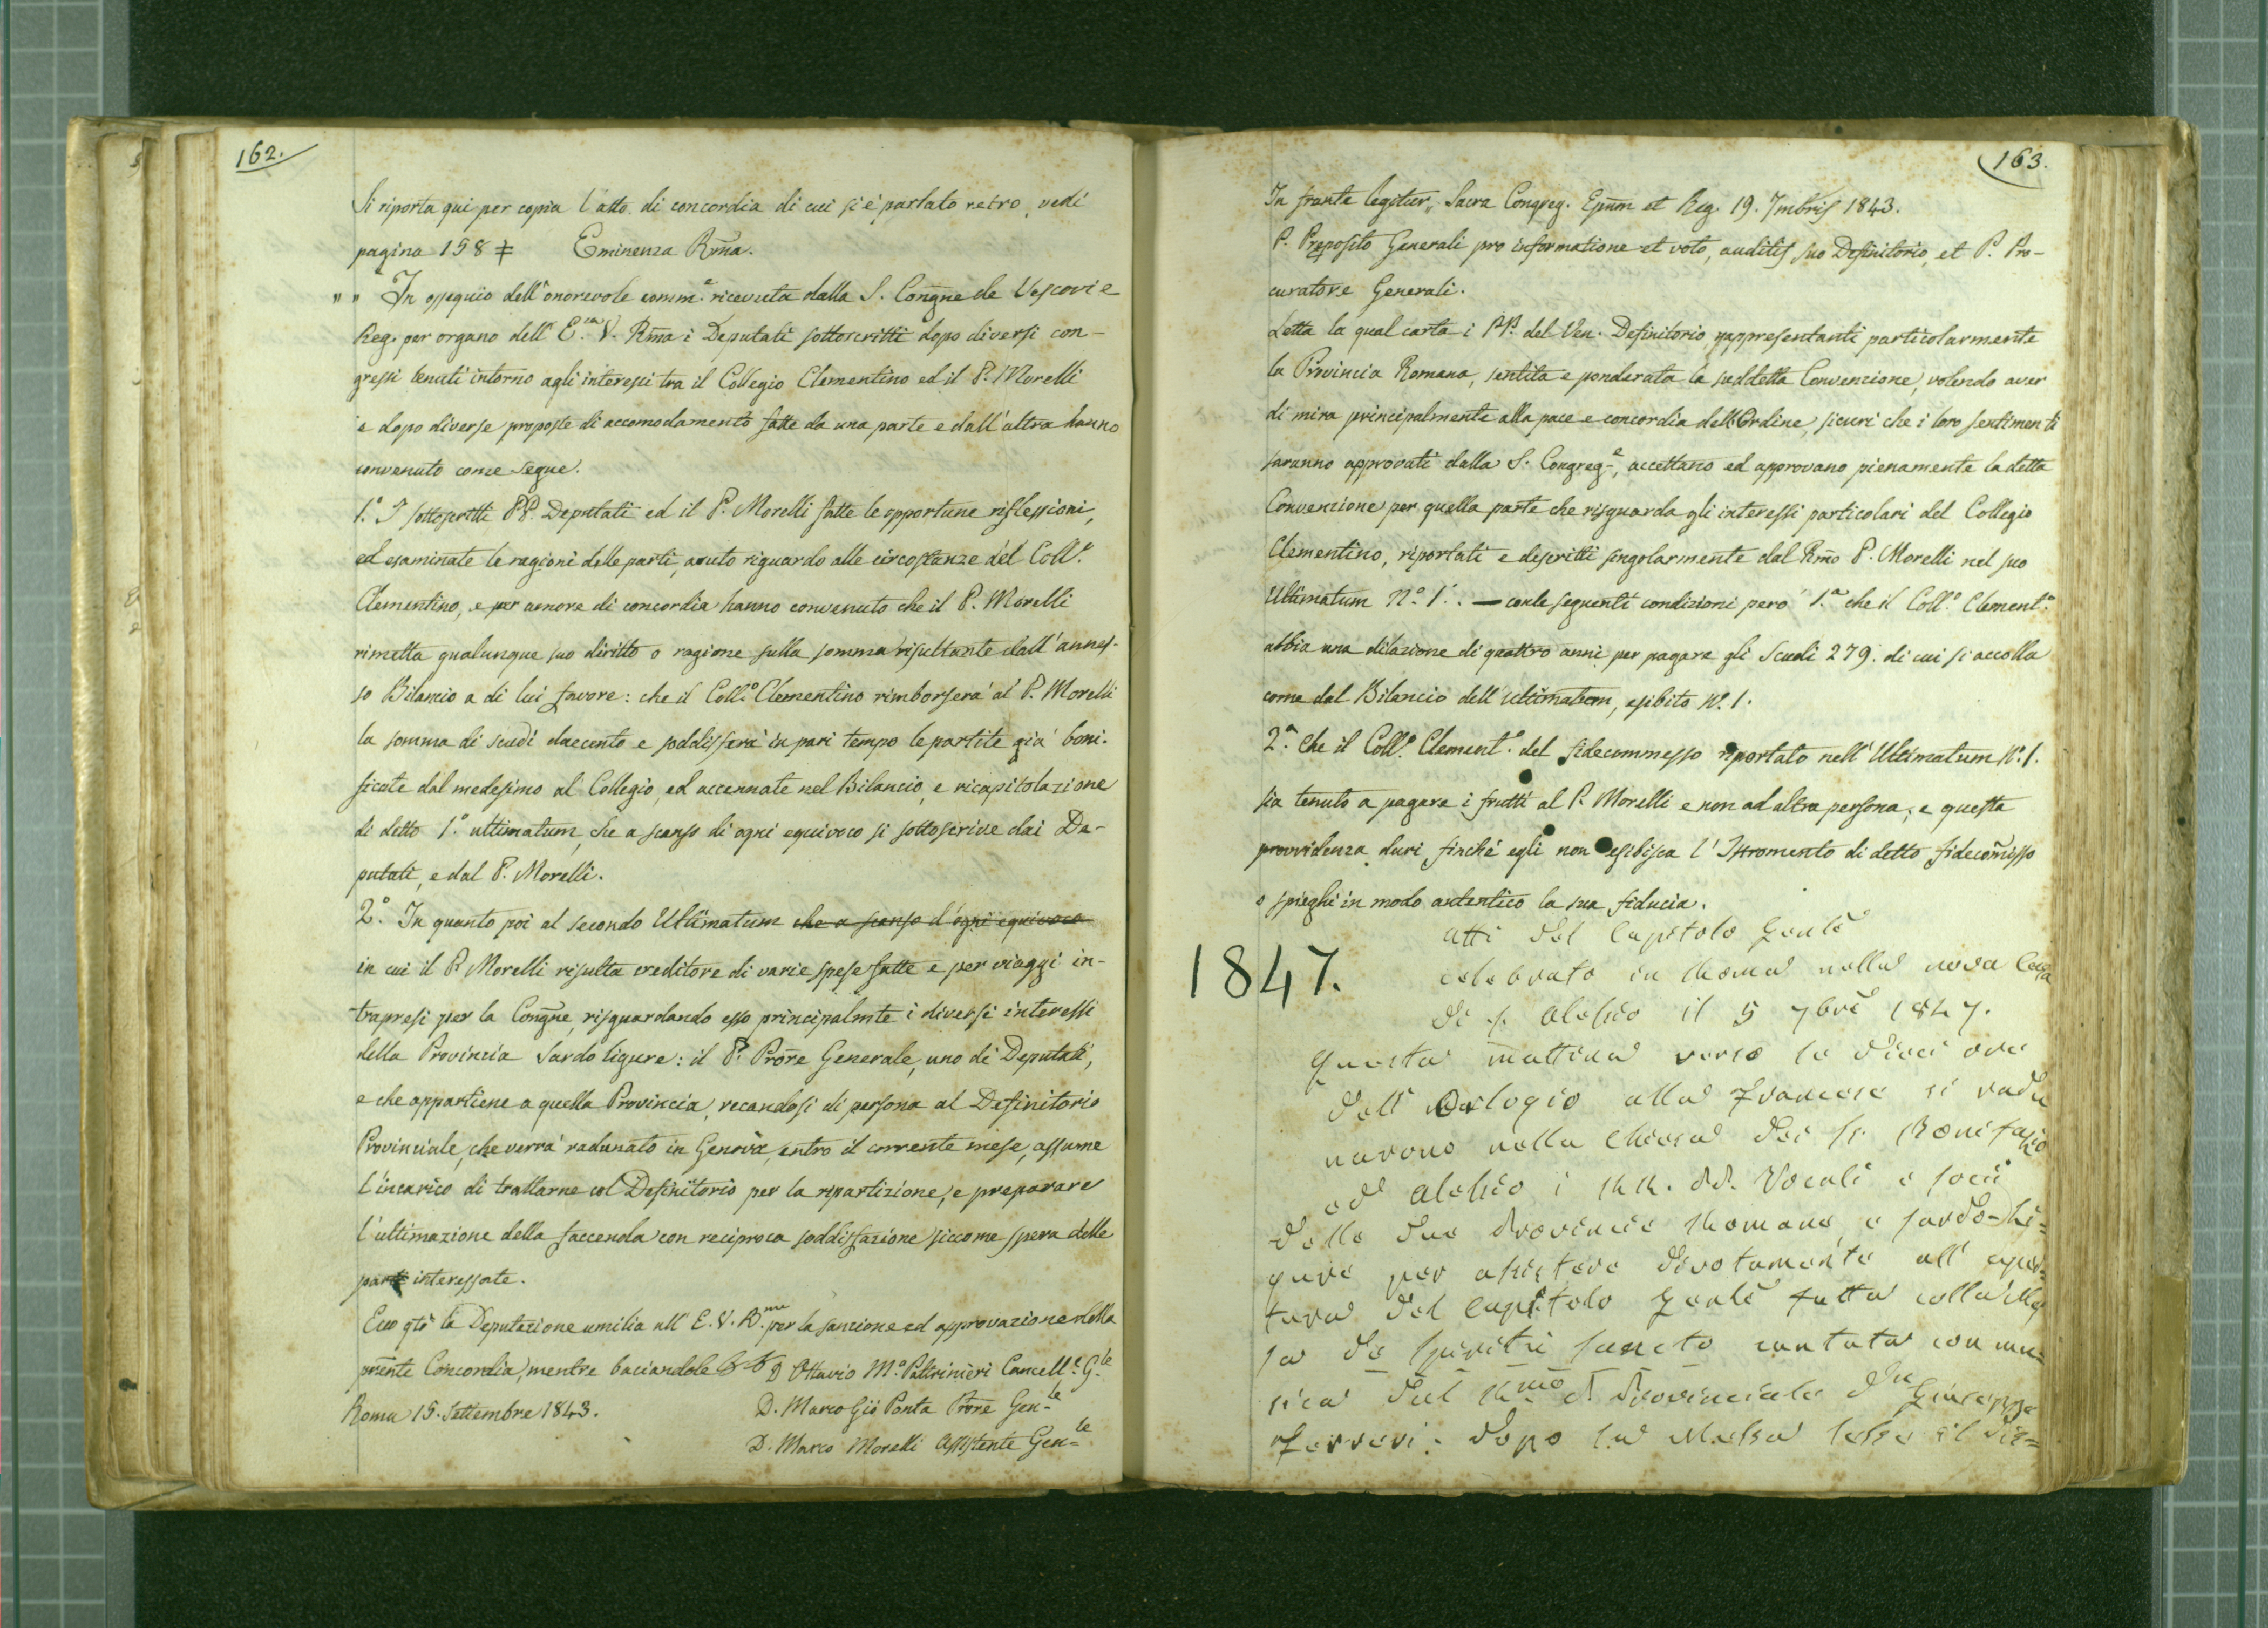 162.
Si riporta qui per copia l'atto di concordia di cui si è parlato retro, vedi
pagina 158 ‡ Eminenza Rm̃a.
" " In ossequio dell'onorevole comm.e ricevuta dalla S. Cong̃ne de Vescovi e
Reg. per organo dell' E.za V. Rm̃a i Deputati sottoscritti dopo diversi con-
gressi tenuti intorno agli interessi tra il Collegio Clementino ed il P. Morelli
e dopo diverse proposte di accomodamento fatte da una parte e dall'altra hanno
convenuto come segue.
1.° I sottoscritti PP. Deputati ed il P. Morelli fatte le opportune riflessioni,
ed esaminate le ragioni delle parti, avuto riguardo alle circostanze del Coll.°
Clementino, e per amore di concordia hanno convenuto che il P. Morelli
rimetta qualunque suo diritto o ragione sulla somma risultante dall'annes-
so Bilancio a di lui favore: che il Coll.° Clementino rimborserà al P. Morelli
la somma di scudi duecento e soddisferà in pari tempo le partite già boni-
ficate dal medesimo al Collegio, ed accennate nel Bilancio, e ricapitolazione
di detto 1.° ultimatum, che a scanso di ogni equivoco si sottoscrive dai De-
putati, e dal P. Morelli.
2.° In quanto poi al secondo Ultimatum che a scanso d'ogni equivoco
in cui il P. Morelli risulta creditore di varie spese fatte e per viaggi in-
trapresi per la Cong̃ne, risguardando esso principalmte i diversi interessi
della Provincia Sardo ligure: il P. Prõre Generale, uno di Deputati,
e che appartiene a quella Provincia, recandosi di persona al Definitorio
Provinciale, che verrà radunato in Genova, entro il corrente mese, assume
l'incarico di trattarne col Definitorio per la ripartizione, e preparare
l'ultimazione della faccenda con reciproca soddisfazione siccome spera delle
parti interessate.
Ecco qto la Deputazione umilia all' E. V. R.ma per la sanzione ed approvazione della
pñte Concordia, mentre baciandole D Ottavio M.a Paltrinieri Cancell.e G.le
Roma 15. Settembre 1843. D. Marco Giõ Ponta Prõre Gen.le
D. Marco Morelli Assistente Gen.le
163.
In fronte legitur „ Sacra Congreg. Epũm et Reg. 19. 7mbris 1843.
P. Preposito Generali pro informatione et voto, auditis suo Definitorio, et P. Pro-
curatore Generali.
Letta la qual carta i PP. del Ven. Definitorio rappresentanti particolarmente
la Provincia Romana, sentita e ponderata la suddetta Convenzione, volendo aver
di mira principalmente alla pace e concordia dell'Ordine, sicuri che i loro sentimenti
saranno approvati dalla S. Congreg.e, accettano ed approvano pienamente la detta
Convenzione per quella parte che risguarda gli interessi particolari del Collegio
Clementino, riportati e descritti singolarmente dal Rm̃o P. Morelli nel suo
Ultimatum N.° 1. — conle seguenti condizioni però 1.a che il Coll.° Clement.°
abbia una dilazione di quattro anni per pagare gli Scudi 279. di cui si accolla
come dal Bilancio dell'ultimatum, esibito N.° 1.
2.a Che il Coll.° Clement.° del fidecommesso riportato nell' Ultimatum N.° 1.
sia tenuto a pagare i frutti al P. Morelli e non ad altra persona; e questa
provvidenza duri, finchè egli non esibisca l'Istromento di detto fidecom̃isso
o spieghi in modo autentico la sua fiducia.
1847.
Atti del Capitolo Genlẽ
celebrato in Roma nella nova Casa
di s. Alessio il 5 7brẽ 1847.
Questa mattina verso le dieci ore
dell'Orologio alla Francese si radu
narono nella Chiesa dei Ss. Bonifazio
ed Alessio i RR. PP. Vocali e Socii
delle due Provincie Romana, e Sardo-Li=
gure per assistere divotamente all'aper=
tura del Capitolo Genlẽ fatta colla Mes
sa de Spiritu Sancto cantata con mu=
sica dal R.mo P. Provinciale Dn Giuseppe
Ferreri. Dopo la Messa lesse il dis=